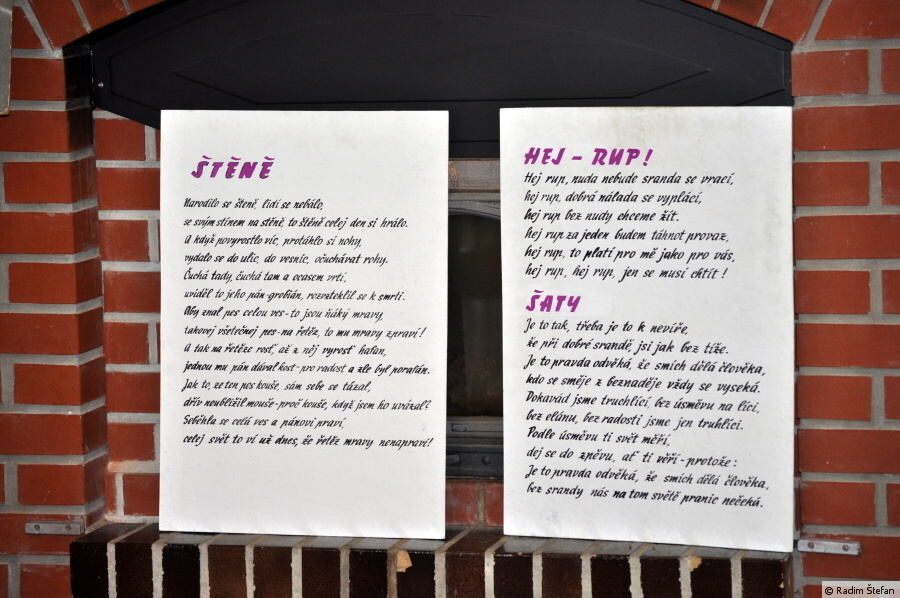 ŠTĚNĚ
Narodilo se šteně, lidí se nebálo,
se svým stínem na stěně, to štěně celej den si hrálo.
A když povyrostlo víc, protáhlo si nohy,
vydalo se do ulic, do vesnic, očuchávat rohy.
Čuchá tady, čuchá tam a ocasem vrtí,
uviděl to jeho pán-grobián, rozvateklil se k smrti.
Aby znal pes celou ves-to jsou ňáký mravy,
takovej všetečnej pes-na řetěz, to mu mravy zpraví!
A tak na řetěze rosť, až z něj vyrosť hafan,
jednou mu pán dával kost-pro radost a zle byl porafán.
Jak to, že ten pes kouše, sám sebe se tázal,
dřív neublížil mouše-proč kouše, když jsem ho uvázal?
Seběhla se celá ves a pánovi praví,
celej svět to ví už dnes, že řetěz mravy nenapraví!
HEJ - RUP!
Hej rup, nuda nebude sranda se vrací,
hej rup, dobrá nálada se vyplácí,
hej rup bez nudy chceme žít.
Hej rup za jeden budem táhnot provaz,
hej rup, to platí pro mě jako pro vás,
hej rup, hej rup, jen se musí chtít!
ŠATY
Je to tak, třeba je to k nevíře,
že při dobré srandě, jsi jak bez tíže.
Je to pravda odvěká, že smích dělá člověka,
kdo se směje z beznaděje vždy se vyseká.
Dokavád jsme truchlící, bez úsměvu na líci,
bez elánu, bez radosti jsme jen truhlíci.
Podle úsměvu ti svět měří,
dej se do zpěvu, ať ti věří-protože:
Je to pravda odvěká, že smích dělá člověka,
bez srandy nás na tom světě pranic nečeká.
© Radim Štefan